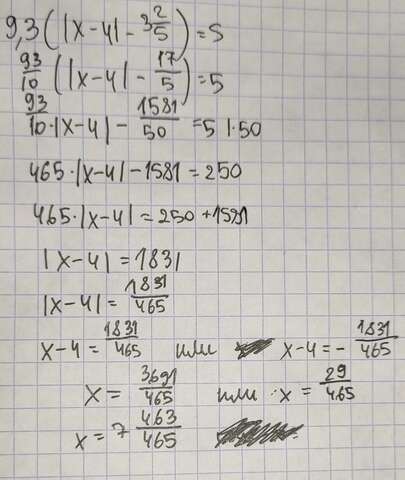 9,3(|x-4|-3 2/5)=5
93/10(|x-4|-17/5)=5
93/10·|x-4|-1581/50=5 |·50
465·|x-4|-1581=250
465·|x-4|=250+1581
|x-4|=1831
|x-4|=1831/465
x-4=1831/465 или x-4=-1831/465
x=3691/465 или x=29/465
x=7 463/465